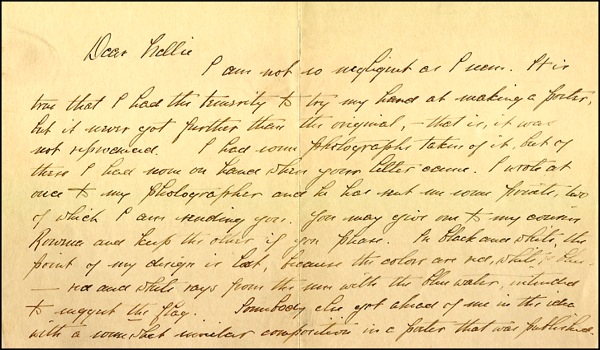 Dear Nellie
I am not so negligent as I seem. It is
true that I had the temerity to try my hand at making a poster,
but it never got further than the original, – that is, it was
not reproduced. I had some photographs taken of it, but of
these I had none on hand when your letter came. I wrote at
once to my photographer and he has sent me some prints, two
of which I am sending you. You may give one to my cousin
Rowena and keep the other if you please. In black and white, the
point of my design is lost, because the colors are red, white, & blue
– red and white rays from the sun with the blue water, intended
to suggest the flag. Somebody else got ahead of me in this idea
with a somewhat similar composition in a poster that was published.